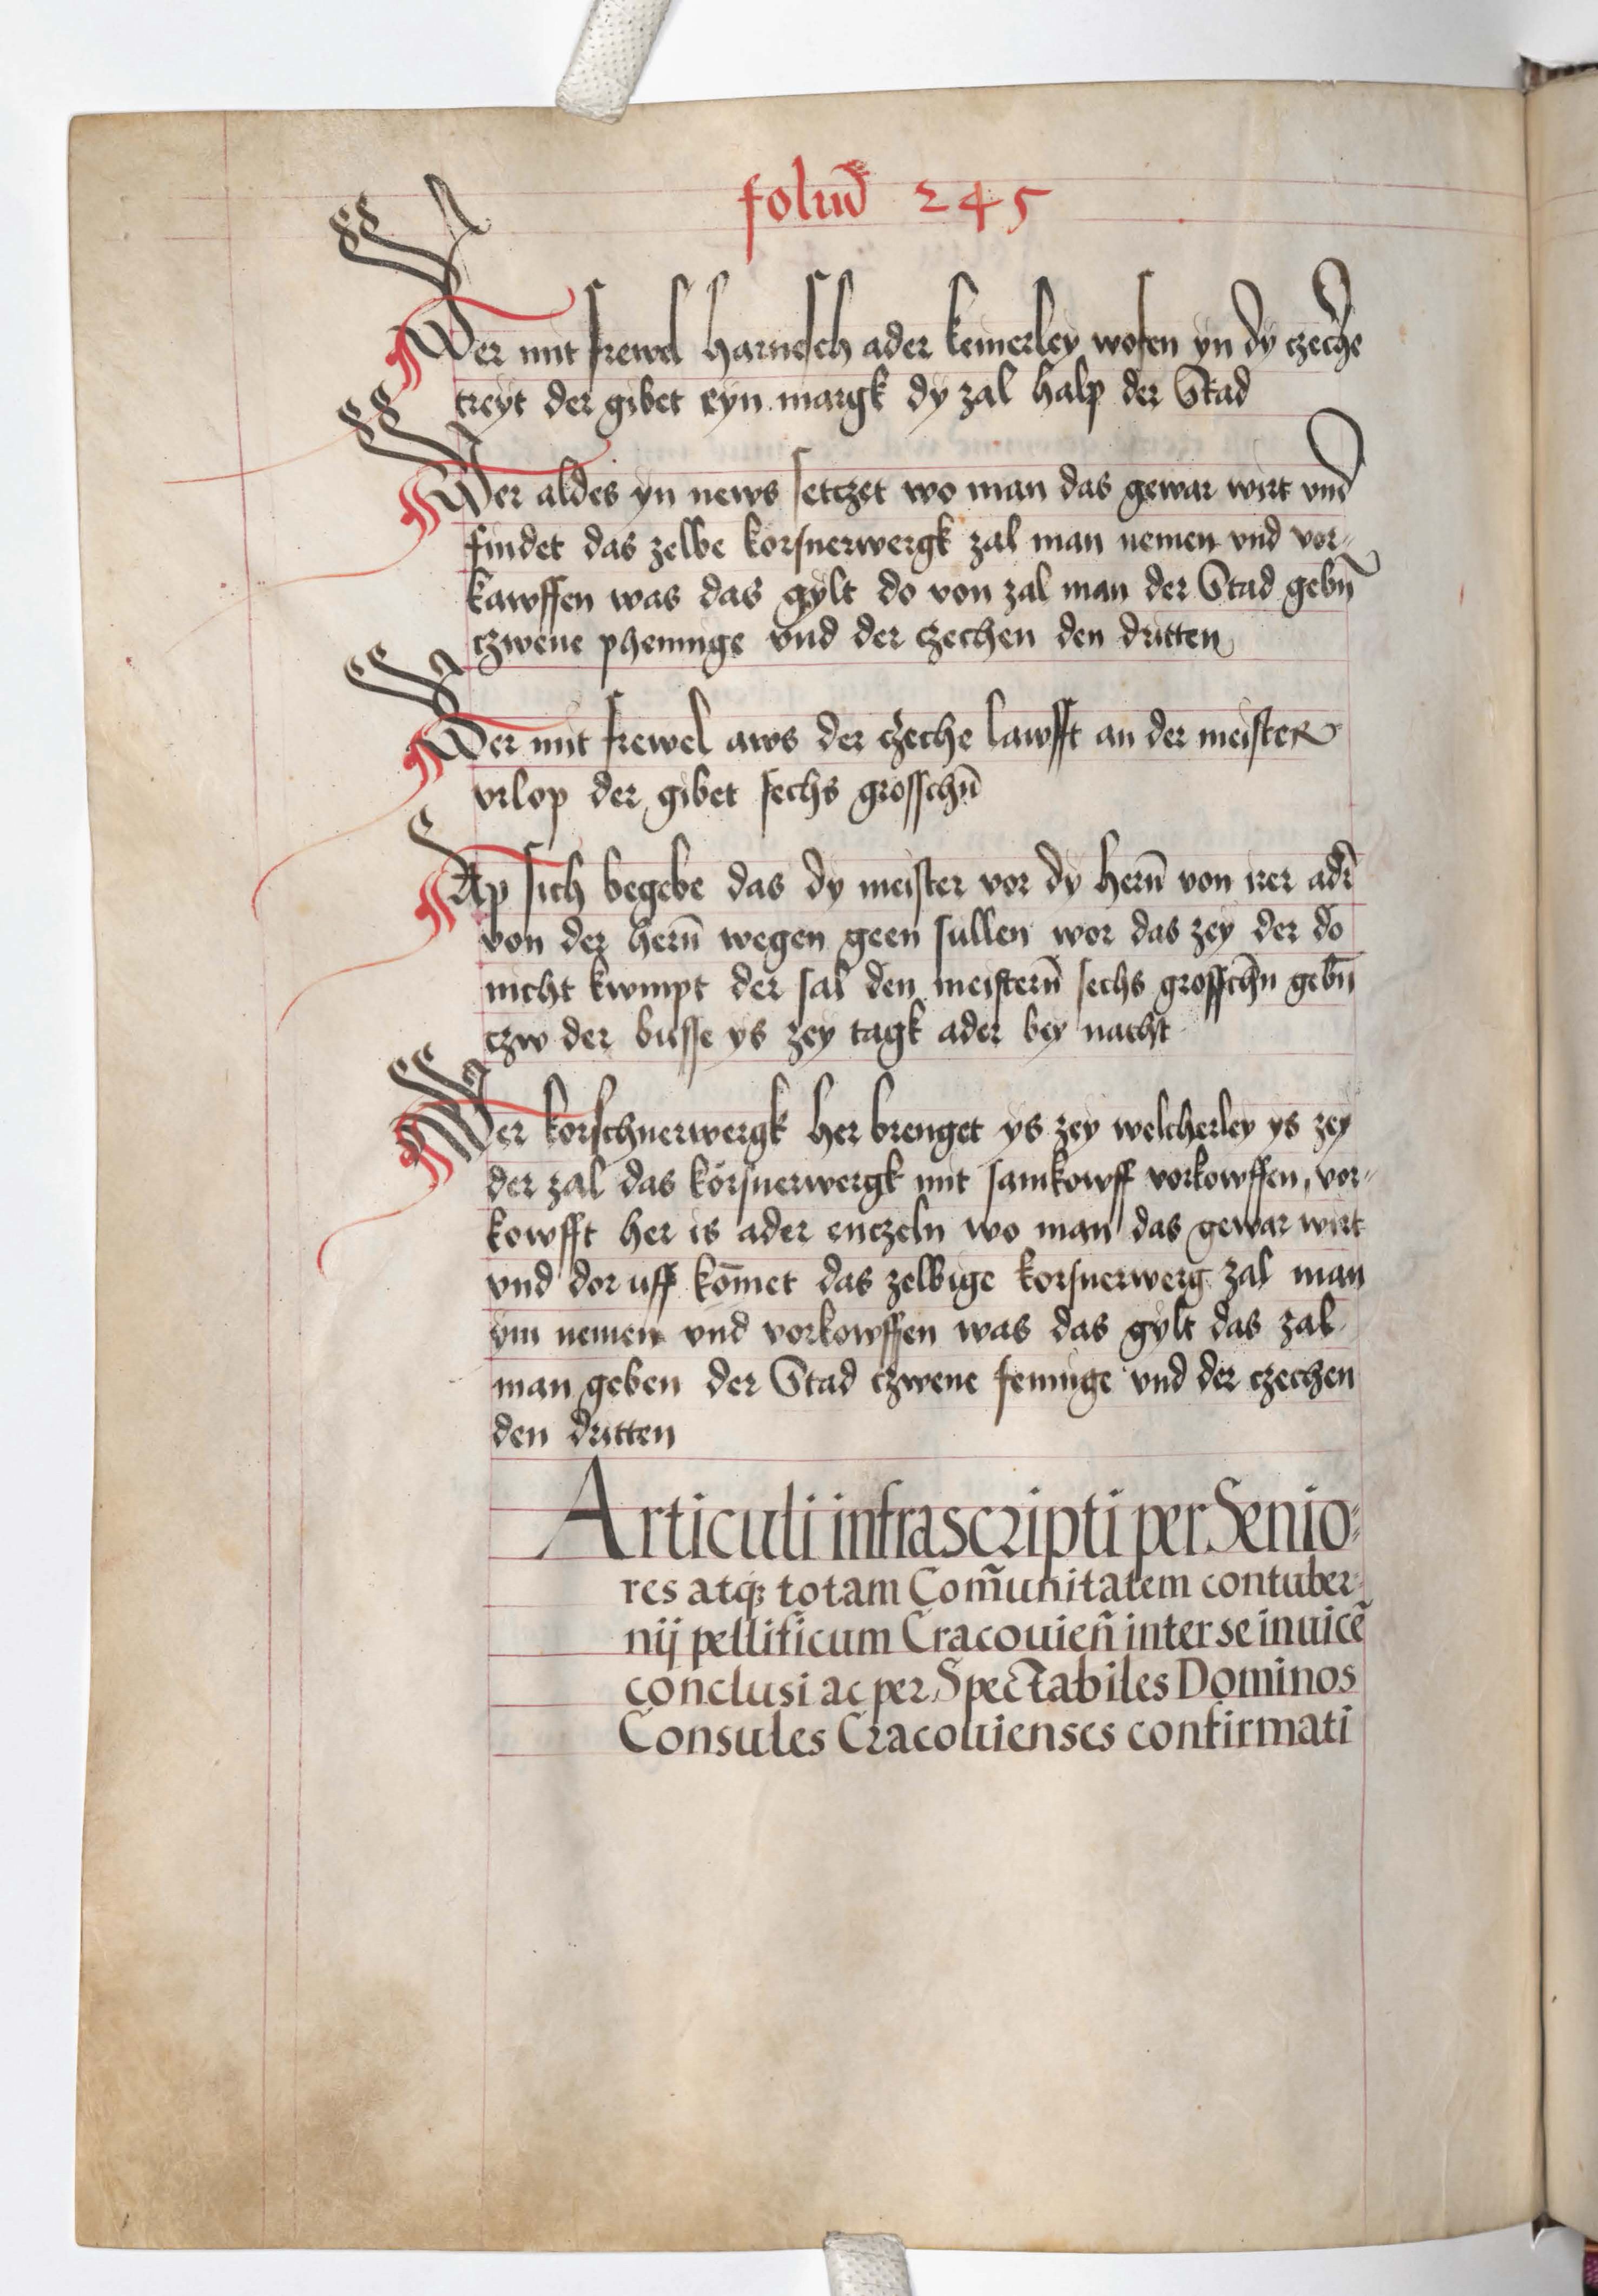 foliū 245
Wer mit frewel harnesch ader keinerley wofen yn dy czeche
treyt der gibet eyn margk dy zal halp der Stad
Wer aldes yn news setczet wo man das gewar wirt vnd
findet das zelbe korsnerwergk zal man nemen vnd vor-
kawffen was das gylt do von zal man der Stad gebn̄
czwene phennige vnd der czechen den dritten
Wer mit frewel aws der czeche lawfft an der meister
vrlop der gibet sechs grosschn̄
Ap sich begebe das dy meister vor dy hern̄ von irer adr̄
von der hern̄ wegen geen sullen wor das zey der do
nicht kwmpt der sal den meistern̄ sechs grosschn̄ gebn̄
czw der busse ys zey tagk ader bey nacht
Wer korschnerwergk her brenget ys zey welcherley ys zey
der zal das korsnerwergk mit samkowff vorkowffen, vor-
kowfft her is ader enczeln wo man das gewar wirt
vnd dor uff kom̄et das zelbige korsnerwerg zal man
ym nemen vnd vorkowffen was das gylt das zal
man geben der Stad czwene fennige vnd der czechen
den dritten
Articuli infrascripti per Senio-
res atqꝫ totam Com̃unitatem contuber-
nij pellificum Cracouien̄ inter se inuicē
conclusi ac per Spectabiles Dominos
Consules Cracouienses confirmati